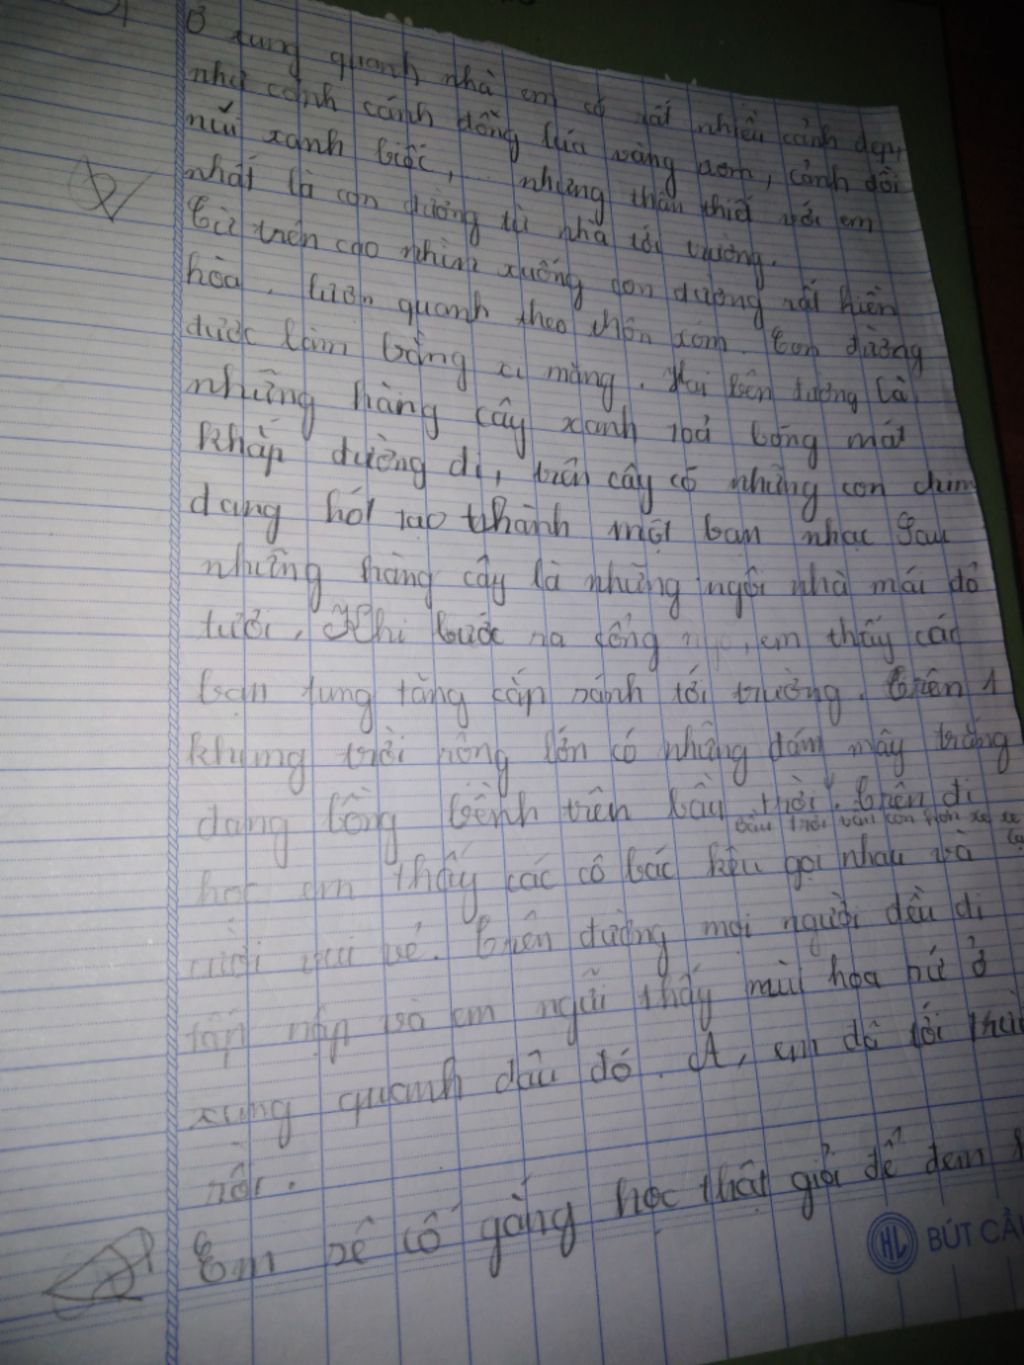 Ở xung quanh nhà em có rất nhiều cảnh đẹp,
như cảnh cánh đồng lúa vàng ươm, cảnh đồi
núi xanh biếc, nhưng thân thiết với em
nhất là con đường từ nhà tới trường.
Từ trên cao nhìn xuống con đường rất hiền
hòa. lượn quanh theo thôn xóm. Con đường
được làm bằng xi măng. Hai bên đường là
những hàng cây xanh toả bóng mát
khắp đường đi, trên cây có những con chim
đang hót tạo thành một ban nhạc Sau
những hàng cây là những ngôi nhà mái đỏ
tươi. Khi bước ra cổng em thấy các
bạn tung tăng cắp sánh tới trường. Trên 1
khung trời rông lớn có những đám mây trắng
đang bồng bềnh trên bầu trời. Trên đi
bầu trời vẫn còn hơn xe xe
học em thấy các cô bác kêu gọi nhau và
cười vui vẻ. Trên đường mọi người đều đi
tấp nập và em ngửi thấy mùi hoa sứ ở
xung quanh đâu đó. A, em đã tới
rồi.
Em sẽ cố gắng học thật giỏi để đem
HL BÚT